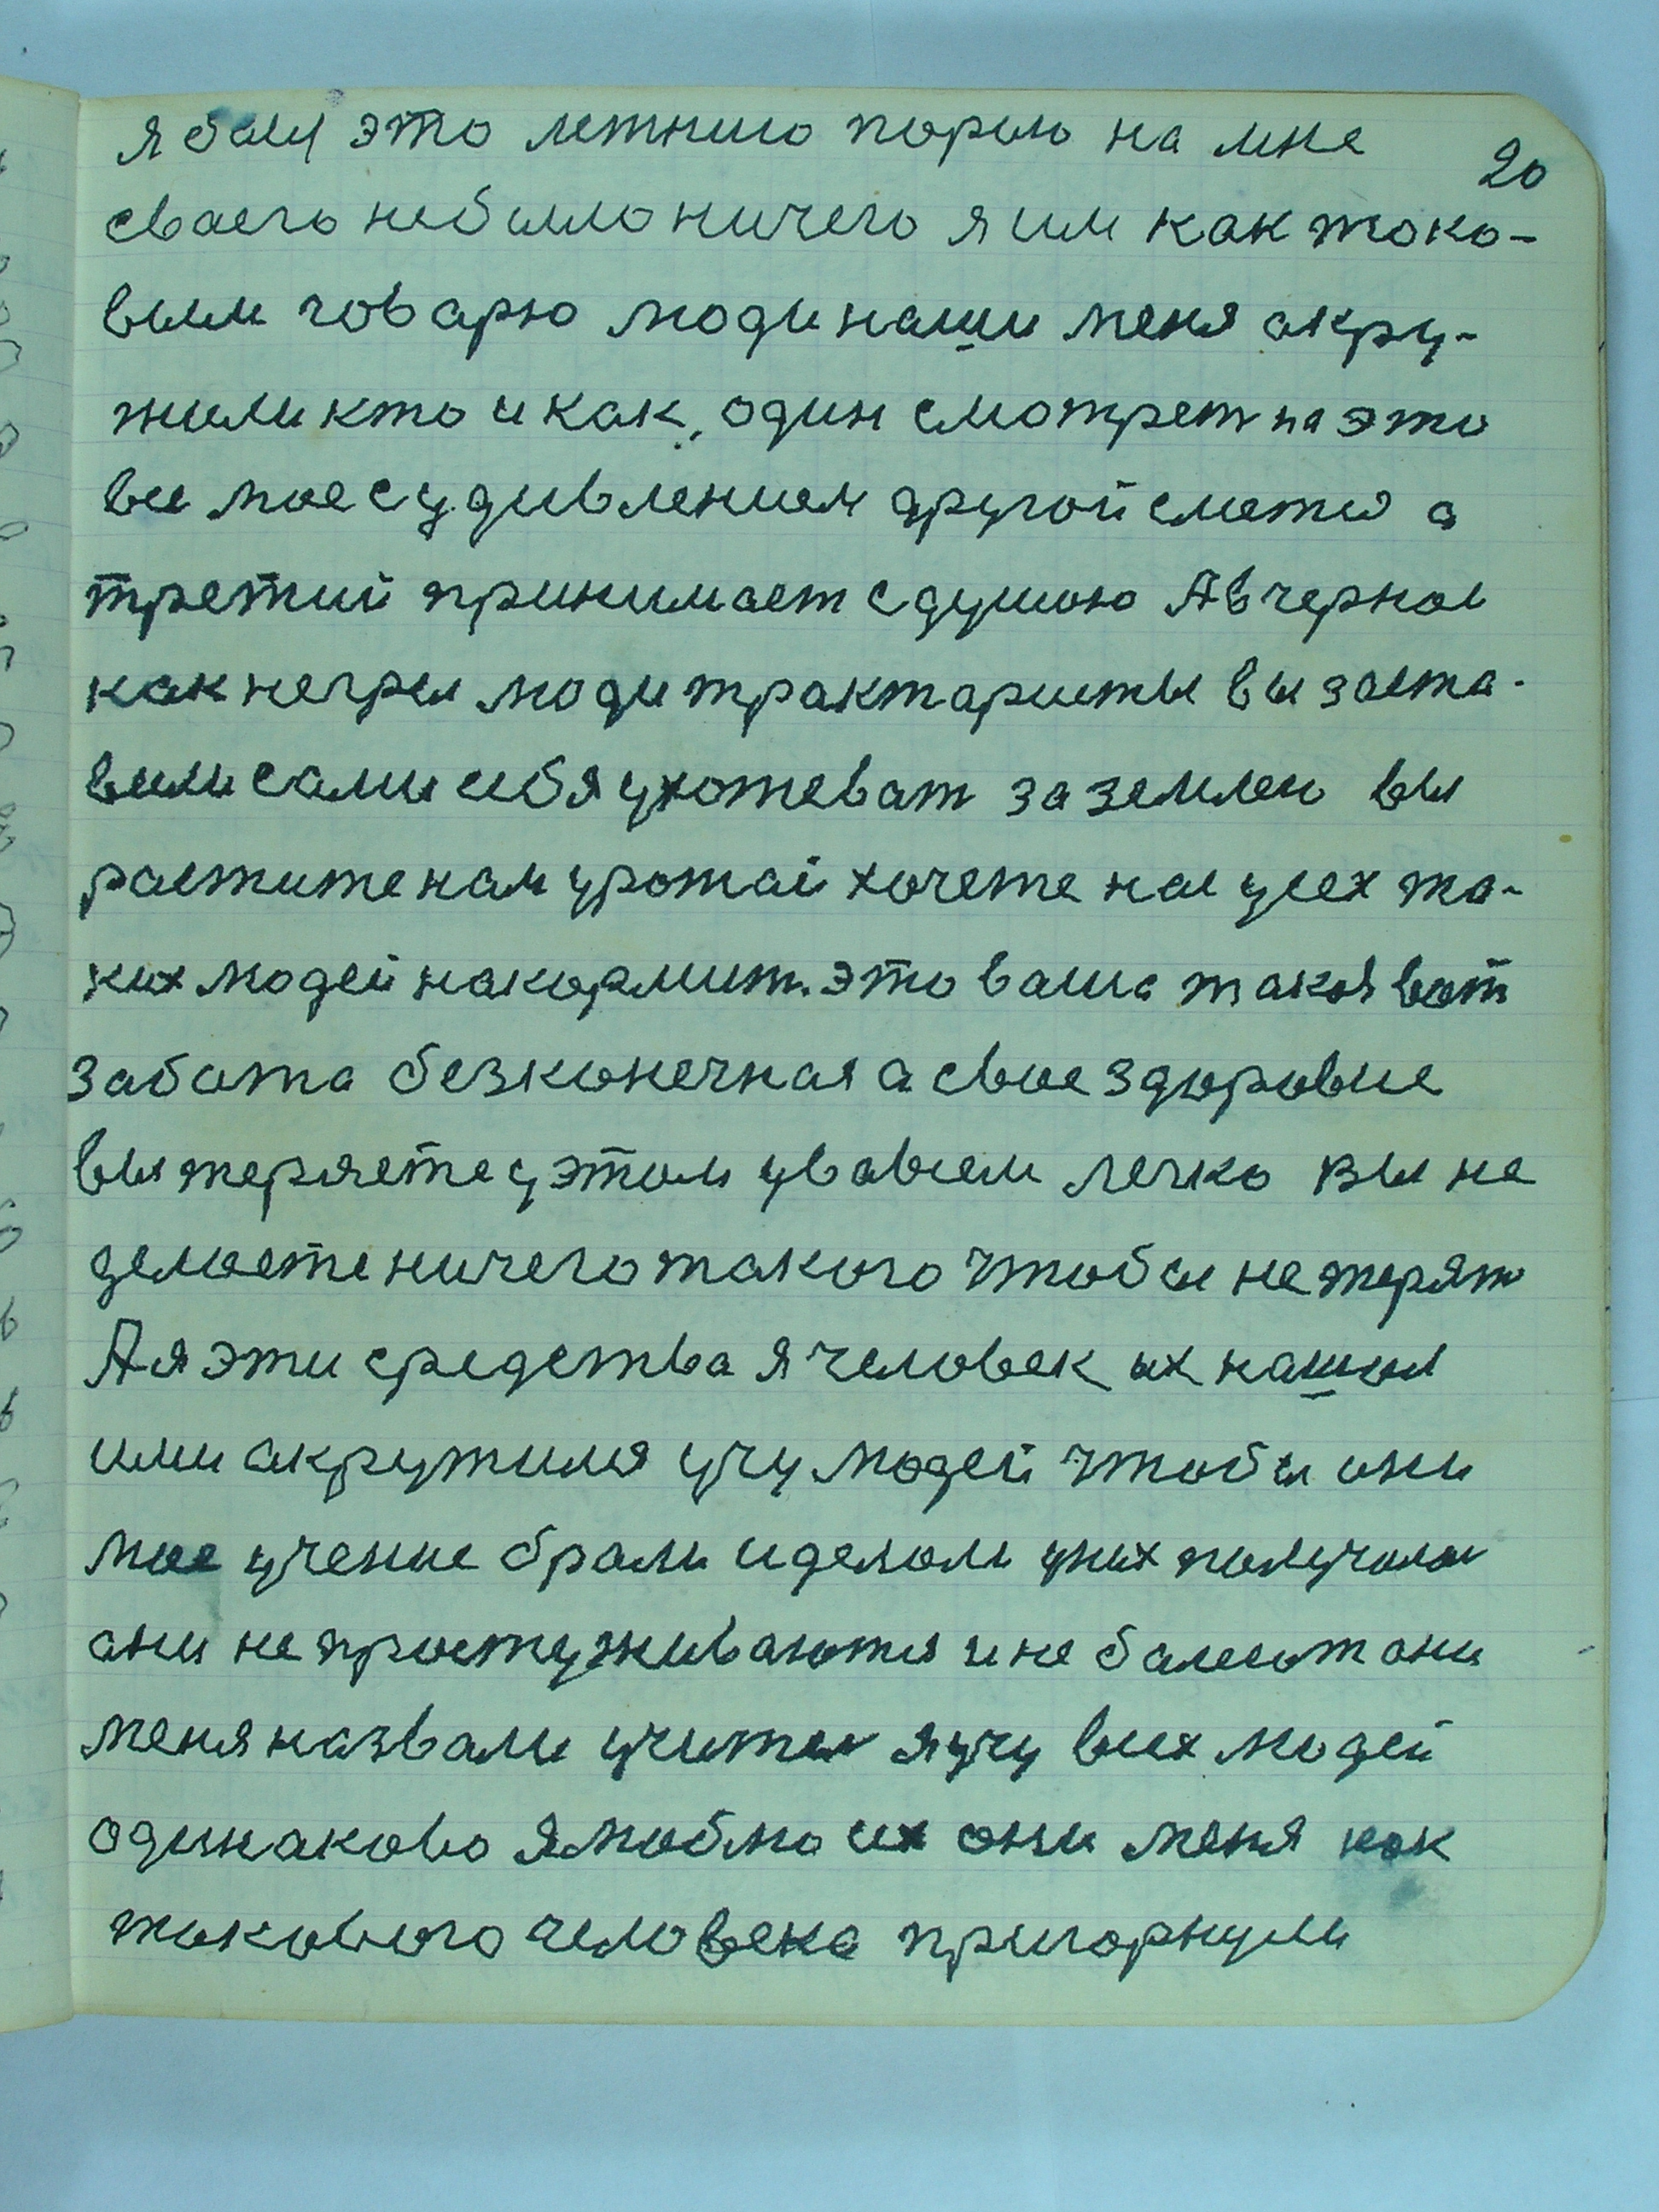 я был это летнию порою на мне
20
сваего небыло ничего я им как токо-
вым говарю люди наши меня акру-
жили кто и как, один смотрет на это
все мое с удивлением другой смети а
третий принимает с душою А в черном
как негры люди трактаристы вы заста-
вили сами себя ухожеват за землею вы
растите нам урожай хочете нас усех та-
ких людей накормит. это ваша такая вот
забота безконечная а свое здоровие
вы теряете у этом увавсем легко вы не
делаете ничего такого чтобы не терят
А я эти средства я человек их нашол
ими акружился учу людей чтобы они
мое учение брали и делали у них получилос
они не простуживаются и не балеют они
меня назвали учител я учу всех людей
одинаково я люблю их они меня как
токового человека пригорнули